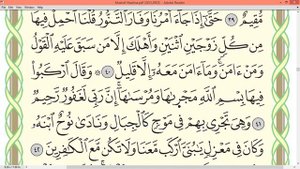 Mushaf Madina.pdf (SECURED) - Adobe Reader
مُّقِيمٌ ٣٩ حَتَّىٰٓ إِذَا جَآءَ أَمْرُنَا وَفَارَ ٱلتَّنُّورُ قُلْنَا ٱحْمِلْ فِيهَا
مِن كُلٍّ زَوْجَيْنِ ٱثْنَيْنِ وَأَهْلَكَ إِلَّا مَن سَبَقَ عَلَيْهِ ٱلْقَوْلُ
وَمَنْ ءَامَنَ ۚ وَمَآ ءَامَنَ مَعَهُۥٓ إِلَّا قَلِيلٌ ٤٠ وَقَالَ ٱرْكَبُوا۟
فِيهَا بِسْمِ ٱللَّهِ مَجْر۪ىٰهَا وَمُرْسَىٰهَآ ۚ إِنَّ رَبِّى لَغَفُورٌ رَّحِيمٌ
٤١ وَهِىَ تَجْرِى بِهِمْ فِى مَوْجٍ كَٱلْجِبَالِ وَنَادَىٰ نُوحٌ ٱبْنَهُۥ
وَكَانَ فِى مَعْزِلٍ يَـٰبُنَىَّ ٱرْكَب مَّعَنَا وَلَا تَكُن مَّعَ ٱلْكَـٰفِرِينَ ٤٢